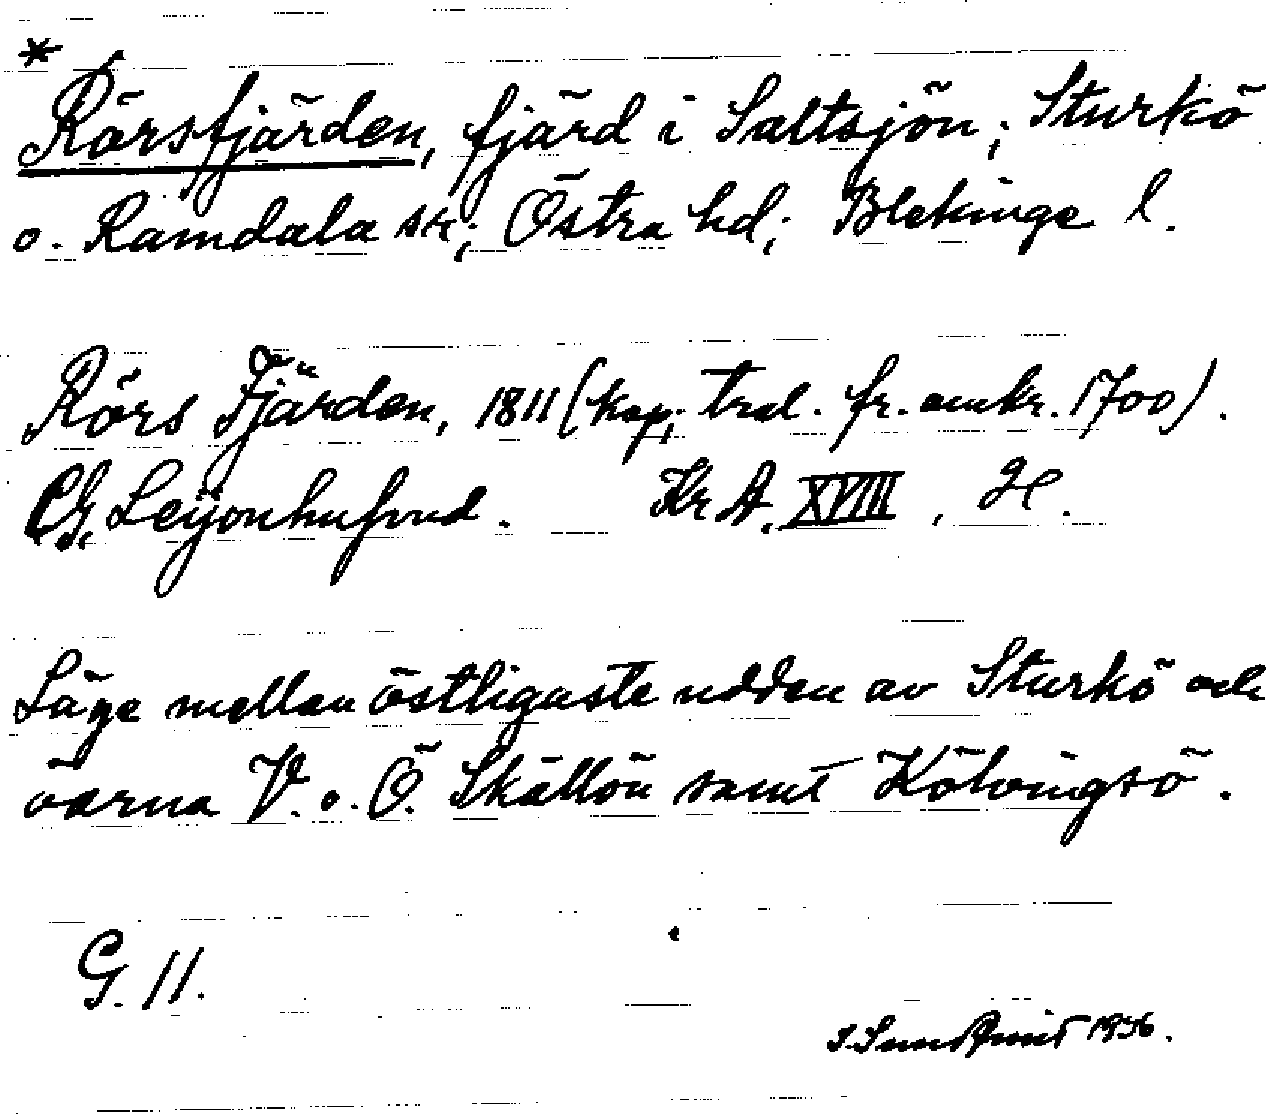 *
Rörsfjärden, fjärd i Saltsjön; Sturkö
o. Ramdala sk; Östra hd; Blekinge l.
Rörs Fjärden, 1811 (kop; tral. fr. omkr. 1700).
C.G. Leijonhufvud. Kr A. XVIII, H.
Läge mellan östligaste udden av Sturkö och
öarna V. o. Ö. Skällön samt Kölvingsö.
G. 11.
1936.